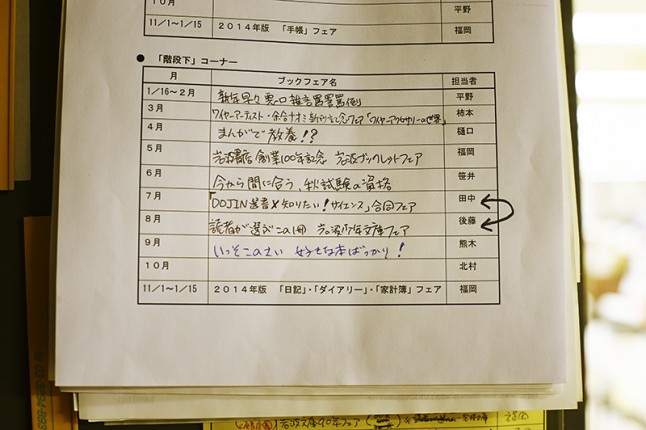 10月 平野
11/1~1/15 2014年版 「手帳」フェア 福岡
●「階段下」コーナー
月 ブックフェア名 担当者
1/16~2月 新年早々 悪口雑言罵詈罵倒 平野
3月 ワイヤーアーティスト・余合ナオミ新刊記念フェア「ワイヤーアクセサリーの世界」 柿本
4月 まんがで教養!? 樋口
5月 岩波書店創業100年記念 岩波ブックレットフェア 福岡
6月 今から間に合う、秋試験の資格 笹井
7月 「DOJIN選書×知りたい!サイエンス」合同フェア 田中
8月 読者が選ぶこの1冊 岩波少年文庫フェア 後藤
9月 いっそこのさい 好きな本ばっかり! 熊木
10月 北村
11/1~1/15 2014年版 「日記」・「ダイアリー」・「家計簿」フェア 福岡
岩波文庫90年フェア